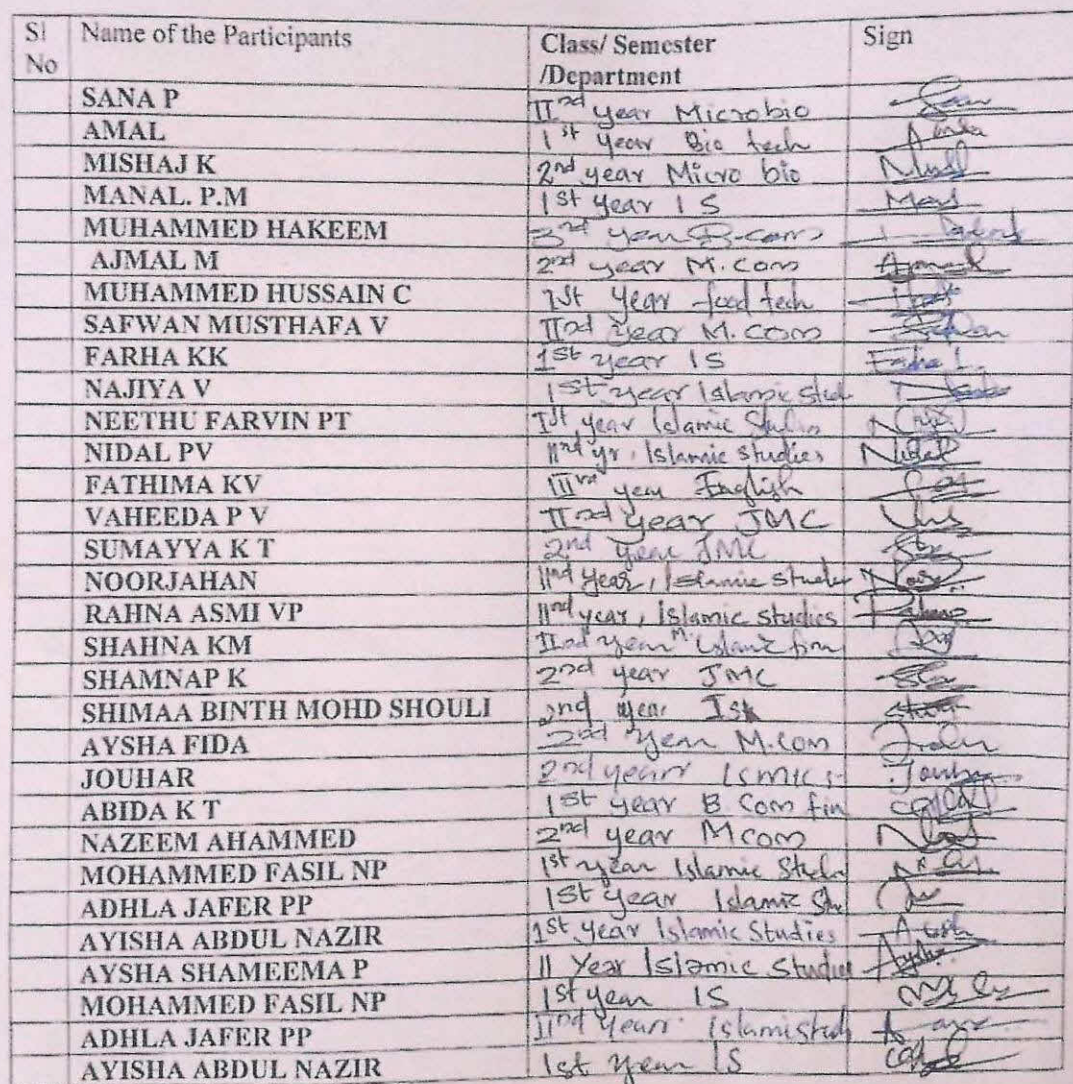 Sl No Name of the Participants Class/ Semester /Department Sign
SANA P IInd year Microbio
AMAL 1st year Bio tech
MISHAJ K 2nd year Micro bio
MANAL. P.M 1st year I S
MUHAMMED HAKEEM 3rd year B.com
AJMAL M 2nd year M.Com Ajmal
MUHAMMED HUSSAIN C 1st year food tech
SAFWAN MUSTHAFA V IInd year M.COM Safwan
FARHA KK 1st year IS
NAJIYA V 1st year Islamic Stud
NEETHU FARVIN PT Ist year Islamic Studies
NIDAL PV IInd yr. Islamic studies Nidal
FATHIMA KV IIIrd year English
VAHEEDA P V IInd year JMC
SUMAYYA K T 2nd year JMC
NOORJAHAN IInd year, Islamic studies
RAHNA ASMI VP IInd year, Islamic studies
SHAHNA KM IInd year M. Islamic fin
SHAMNAP K 2nd year JMC
SHIMAA BINTH MOHD SHOULI 2nd year Ist
AYSHA FIDA 2nd year M.com
JOUHAR 2nd year
ABIDA K T 1st year B Com fin
NAZEEM AHAMMED 2nd year Mcom
MOHAMMED FASIL NP 1st year Islamic
ADHLA JAFER PP 1st year Islamic
AYISHA ABDUL NAZIR 1st year Islamic Studies
AYSHA SHAMEEMA P II Year Islamic Studies
MOHAMMED FASIL NP 1st year IS
ADHLA JAFER PP IInd year
AYISHA ABDUL NAZIR 1st year IS